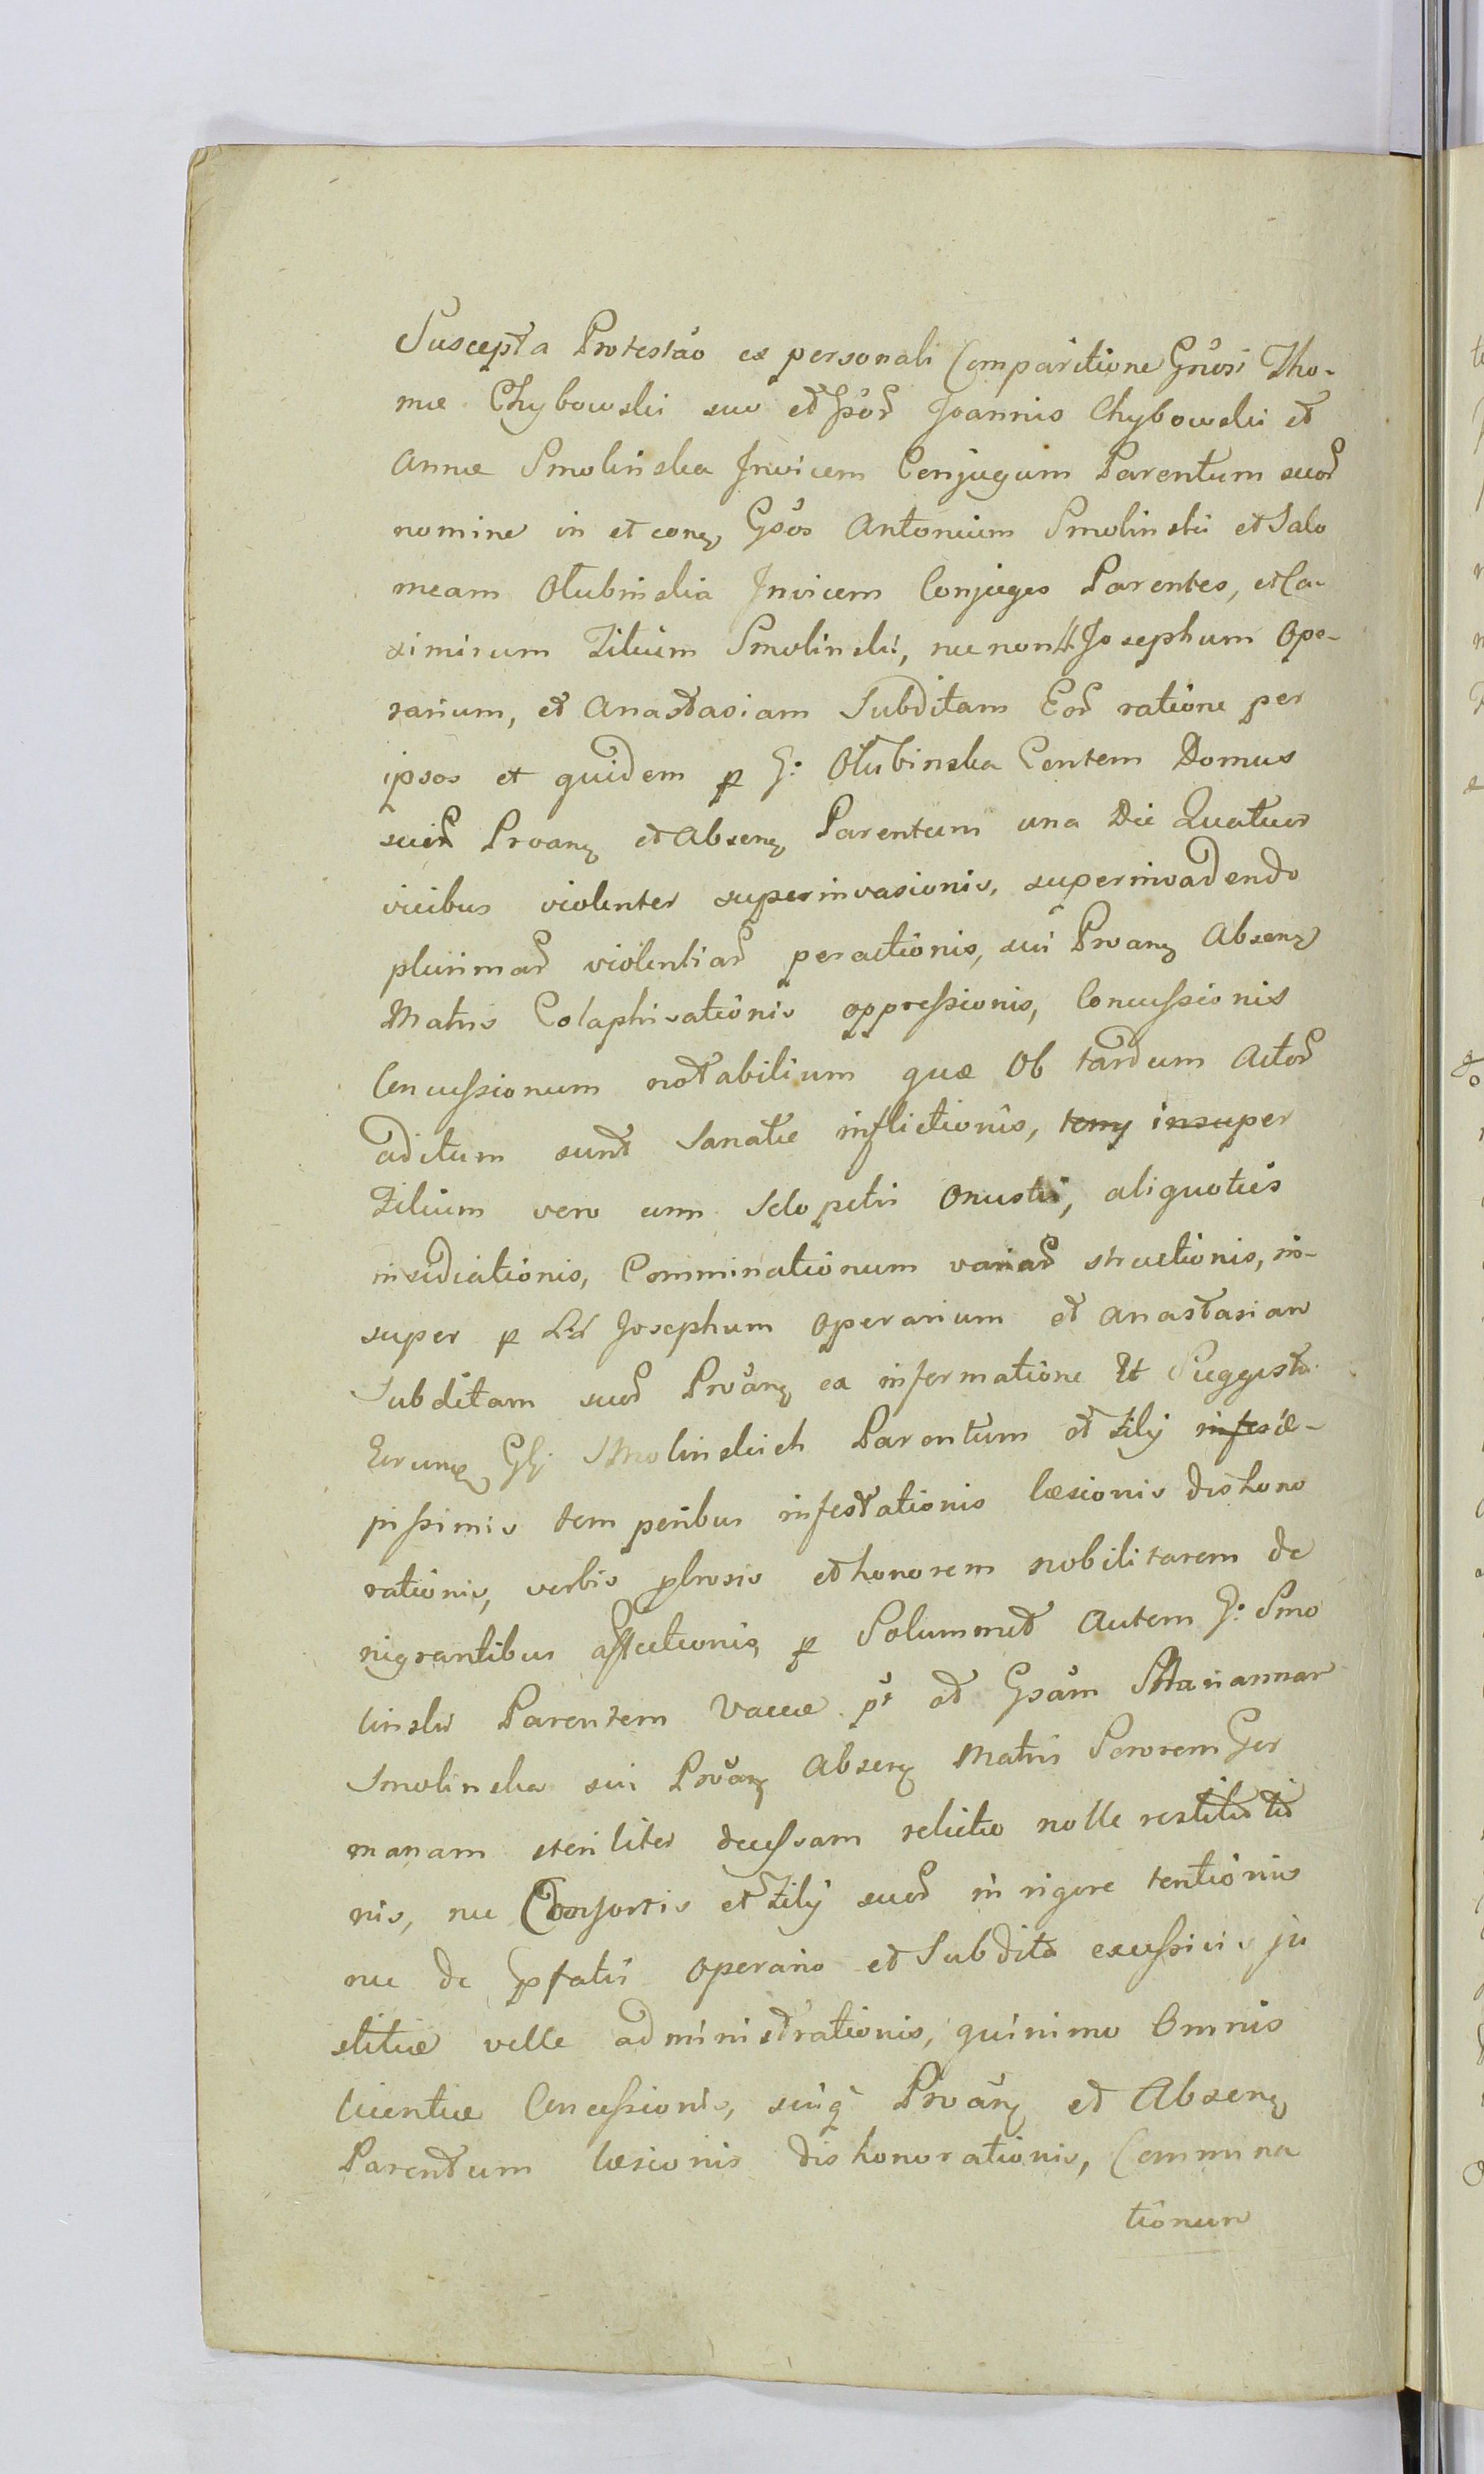 Suscepta Protestão ex personali Comparitione Gnosi Tho-
mæ Chybowski suo et Joannis Chybowski et
Annæ Smolinska Invicem Conjugum Parentum suor
nomine in et con Gsos Antonium Smolinski et Salo
meam Olubinska Invicem Conjuges Parentes, et Ca-
simirum Filium Smolinski, nec non LL Josephum Ope-
rarium, et Anastasiam Subditam Eor ratione per
ipsos et quidem p G: Olubinska Domus
suor Proan et Absen Parentum una Die Quatuor
vicibus violenter superinvasionis, superinvadendo
plurimar violentiar peractionis, sui Proan Absen
Matris Colaphisationis oppressionis, Concussionis
Concussionum notabilium quæ Ob tardum Actor
aditum sunt Sanatæ inflictionis, insuper
Filium vero cum Sclopetis Onustis, aliquoties
insidiationis, Comminationum variar structionis, in-
super p Josephum Operarium et Anastasiam
Subditam suor Proan ex informatione Et Suggesta
Eorum G Smolinskich Parentum et Filij sæ-
pissimis temporibus infestationis læsionis dishono
rationis, verbis probrosis et honorem nobilitarem de
nigrantibus affectionis, p Solummet Autem G: Smo
linski Parentem Vaccæ pt ad Gsam Mariannam
Smolinska sui Proan Absen Matris Sororem Ger
manam steriliter decessam relictæ nolle restitutio
nis, nec Consortis et Filij suor in rigore tentionis
nec de pfatis Operario et Subdita excessivis ju
stitiæ velle administrationis, quinimo Omnis
licentiæ Concessionis, suiq Proan et Absen
Parentum læsionis dishonorationis, Commina
tionum